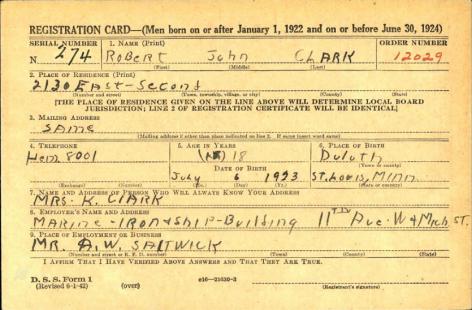 REGISTRATION CARD—(Men born on or after January 1, 1922 and on or before June 30, 1924)
SERIAL NUMBER 1. NAME (Print) ORDER NUMBER
N 274 ROBERT John CLARK 12029
(First) (Middle) (Last)
2. PLACE OF RESIDENCE (Print)
2130 EAST-Second
(Number and street) (Town, township, village, or city) (County) (State)
[THE PLACE OF RESIDENCE GIVEN ON THE LINE ABOVE WILL DETERMINE LOCAL BOARD
JURISDICTION; LINE 2 OF REGISTRATION CERTIFICATE WILL BE IDENTICAL]
3. MAILING ADDRESS
SAME
(Mailing address if other than place indicated on line 2. If same insert word same)
4. TELEPHONE 5. AGE IN YEARS 6. PLACE OF BIRTH
Hem 8001 18 Duluth
DATE OF BIRTH (Town or county)
July 6 1923 ST. Louis, Minn
(Exchange) (Number) (Mo.) (Day) (Yr.) (State or country)
7. NAME AND ADDRESS OF PERSON WHO WILL ALWAYS KNOW YOUR ADDRESS
MRS. K. CLARK
8. EMPLOYER'S NAME AND ADDRESS
MARINE-IRON & SHIP-Building 11TH Ave. W & Mich ST.
9. PLACE OF EMPLOYMENT OR BUSINESS
MR. A.W. SALTWICK
(Number and street or R. F. D. number) (Town) (County) (State)
I AFFIRM THAT I HAVE VERIFIED ABOVE ANSWERS AND THAT THEY ARE TRUE.
D. S. S. Form 1
(Revised 6-1-42) (over) (Registrant's signature)